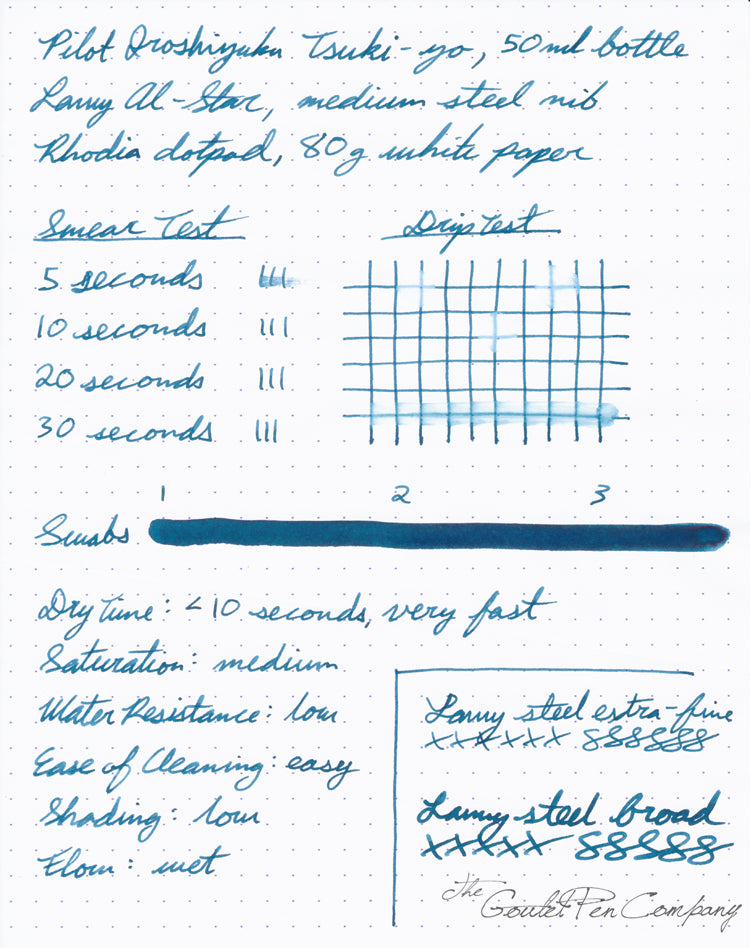 Pilot Iroshizuku Tsuki-yo, 50ml bottle
Lamy Al-Star, medium steel nib
Rhodia dotpad, 80g white paper
Smear Test
Drip Test
5 seconds III
10 seconds III
20 seconds III
30 seconds III
1 2 3
Swabs
Dry Time: <10 seconds, very fast
Saturation: medium
Water Resistance: low
Ease of Cleaning: easy
Shading: low
Flow: wet
Lamy steel extra-fine
xxxxxx 888888
Lamy steel broad
xxxxx 888888
The Goulet Pen Company